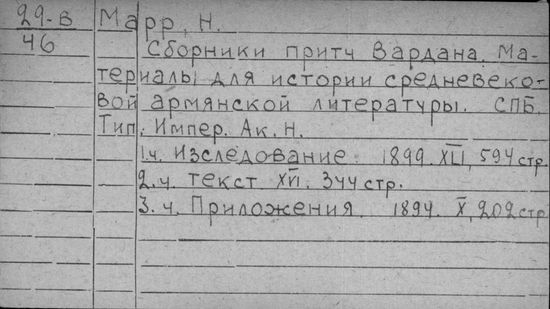 29-В Марр, Н.
46
Сборники притч Вардана. Ма-
териалы для истории средневеко-
вой армянской литературы. СПБ.
Тип. Импер. Ак. Н.
1 ч. Изследование. 1899. XLI, 594 стр.
2. ч. текст XVI. 344 стр.
3. ч. Приложения. 1894. X, 202 стр